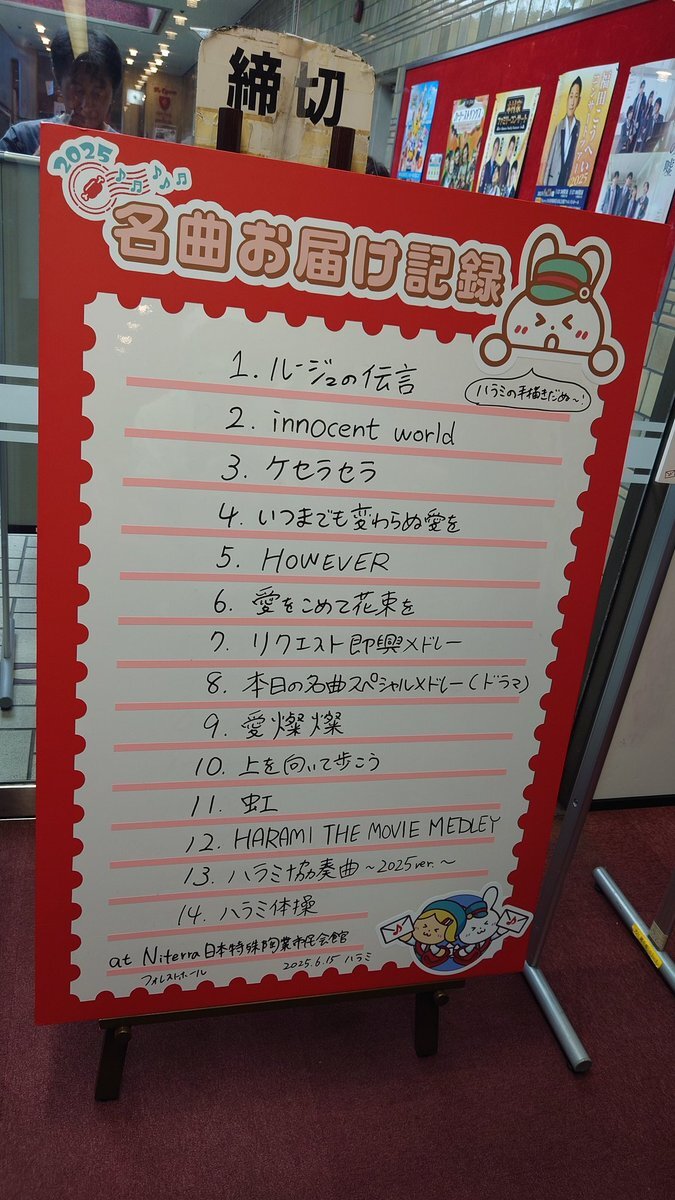 締切
2025
名曲お届け記録
ハラミの手描きだぬ〜!
1. ルージュの伝言
2. innocent world
3. ケセラセラ
4. いつまでも変わらぬ愛を
5. HOWEVER
6. 愛をこめて花束を
7. リクエスト即興メドレー
8. 本日の名曲スペシャルメドレー(ドラマ)
9. 愛燦燦
10. 上を向いて歩こう
11. 虹
12. HARAMI THE MOVIE MEDLEY
13. ハラミ協奏曲〜2025ver.〜
14. ハラミ体操
at Niterra日本特殊陶業市民会館
フォレストホール
2025.6.15 ハラミ